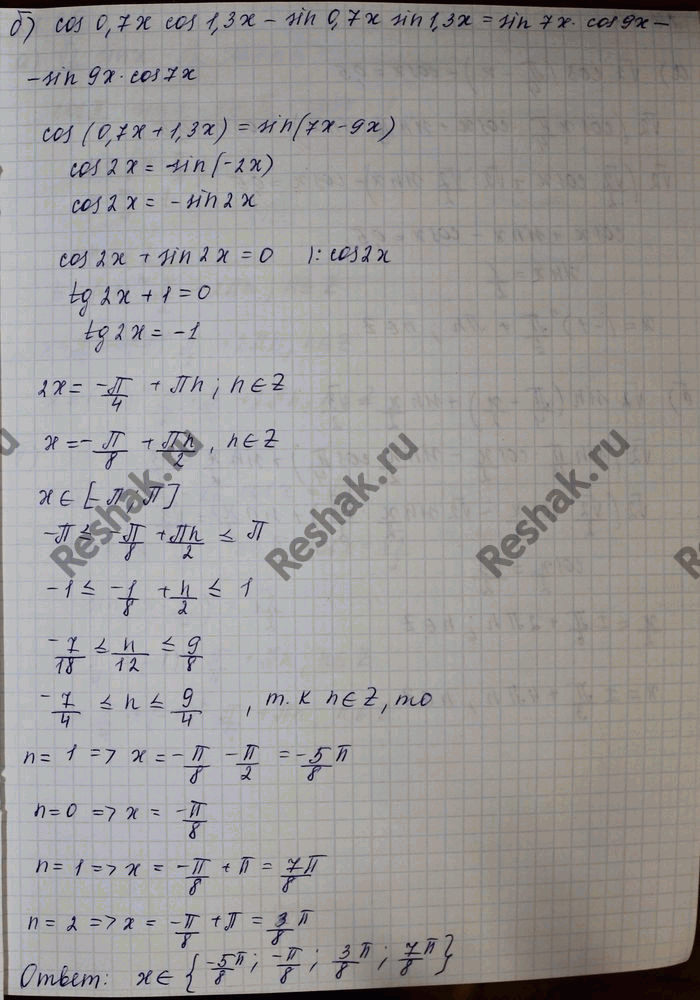 б) cos 0,7x cos 1,3x − sin 0,7x sin 1,3x = sin 7x · cos 9x −
− sin 9x · cos 7x
cos (0,7x + 1,3x) = sin(7x − 9x)
cos 2x = sin(−2x)
cos 2x = − sin 2x
cos 2x + sin 2x = 0 |: cos 2x
tg 2x + 1 = 0
tg 2x = −1
2x = −π/4 + πn; n ∈ Z
x = −π/8 + πn/2, n ∈ Z
x ∈ [−π, π]
−π ≤ −π/8 + πn/2 ≤ π
−1 ≤ −1/8 + n/2 ≤ 1
−7/18 ≤ n/12 ≤ 9/8
−7/4 ≤ n ≤ 9/4, т.к n ∈ Z, то
n = 1 => x = −π/8 − π/2 = −5/8 π
n = 0 => x = −π/8
n = 1 => x = −π/8 + π = 7π/8
n = 2 => x = −π/8 + π = 3/8 π
Ответ: x ∈ {−5/8 π; −π/8; 3/8 π; 7/8 π}
Reshak.ru
Reshak.ru
Reshak.ru